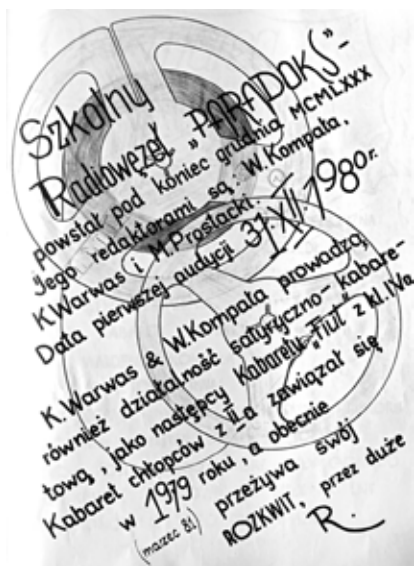 Szkolny
Radiowęzeł „PARADOKS”-
powstał pod koniec grudnia MCMLXXX
Jego redaktorami są: W.Kompała,
K.Warwas i M.Prostacki.
Data pierwszej audycji 31.XII.1980r.
K.Warwas & W.Kompała prowadzą
również działalność satyryczno-kabare-
tową, jako następcy Kabaretu „Fiut” z kl.IVa
Kabaret chłopców z II-a zawiązał się
w 1979 roku, a obecnie
(marzec 81) przeżywa swój
ROZKWIT, przez duże
R.